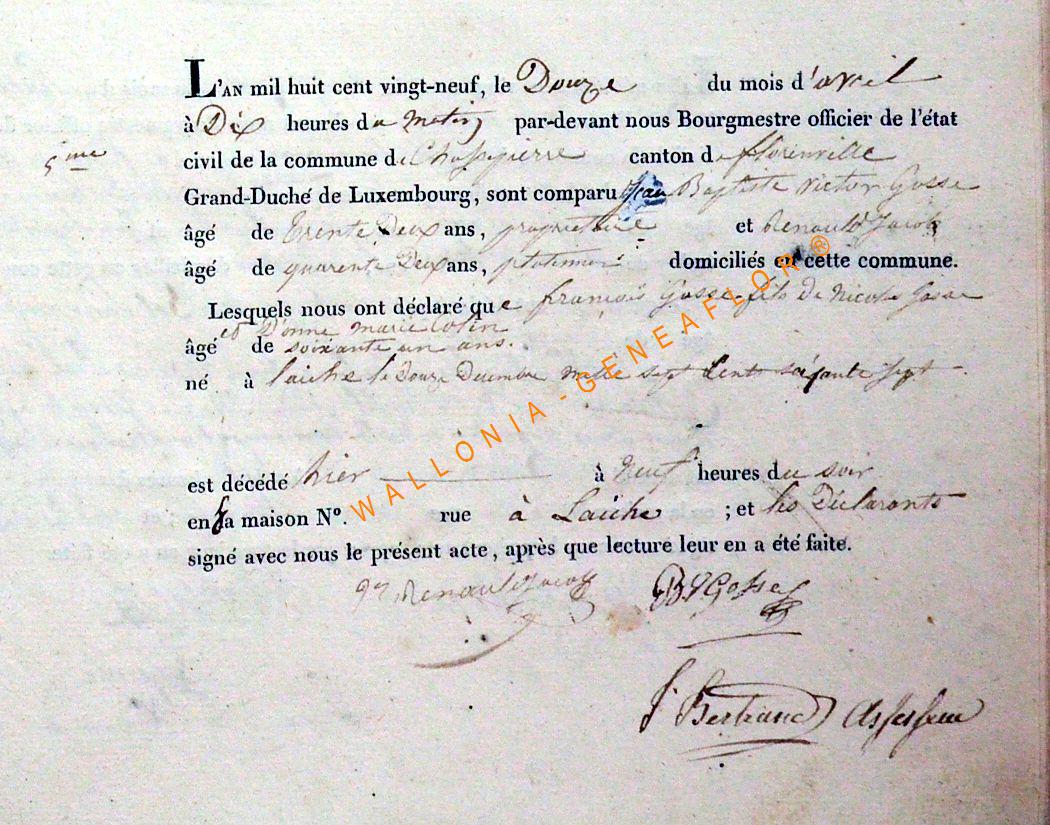 L'AN mil huit cent vingt-neuf, le Douze du mois d'avril
à Dix heures du matin par-devant nous Bourgmestre officier de l'état
5me
civil de la commune de Chassepierre canton de florenville
Grand-Duché de Luxembourg, sont comparu Jean Baptiste Victor Gosse
âgé de trente Deux ans, propriétaire et Renauld Jacob
âgé de quarente Deux ans, domiciliés en cette commune.
Lesquels nous ont déclaré que françois Gosse fils de Nicolas Gosse
et D'onne marie Colin
âgé de soixante un ans.
né à laiche le Douze Decembre mille sept Cents soixante sept
est décédé hier à neuf heures du soir
en sa maison N°. rue à Laiche ; et les Déclarants
signé avec nous le présent acte, après que lecture leur en a été faite.
Renauld Jacob BV Gosse
J. Bertrand assesseur
WALLONIA - GENEAFLOR ®